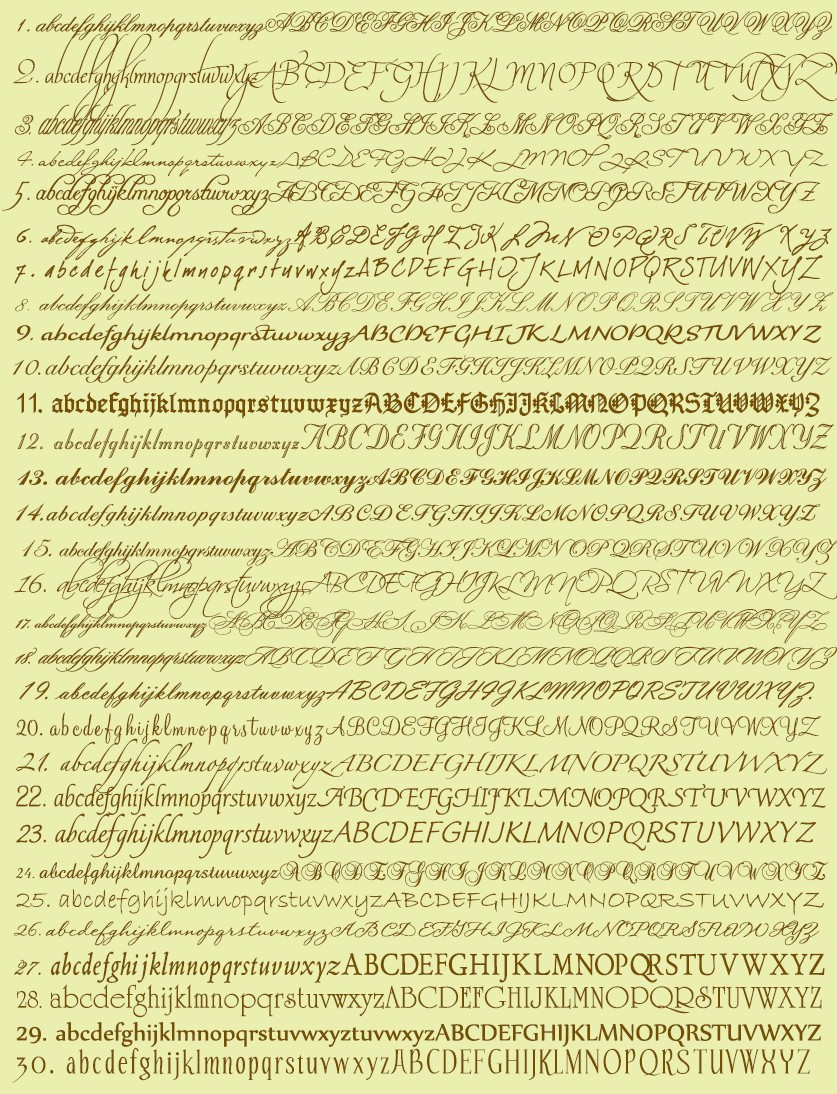 1. abcdefghijklmnopqrstuvwxyzABCDEFGHIJKLMNOPQRSTUVWXYZ
2. abcdefghijklmnopqrstuvwxyzABCDEFGHIJKLMNOPQRSTUVWXYZ
3. abcdefghijklmnopqrstuvwxyzABCDEFGHIJKLMNOPQRSTUVWXYZ
4. abcdefghijklmnopqrstuvwxyzABCDEFGHIJKLMNOPQRSTUVWXYZ
5. abcdefghijklmnopqrstuvwxyzABCDEFGHIJKLMNOPQRSTUVWXYZ
6. abcdefghijklmnopqrstuvwxyzABCDEFGHIJKLMNOPQRSTUVWXYZ
7. abcdefghijklmnopqrstuvwxyzABCDEFGHIJKLMNOPQRSTUVWXYZ
8. abcdefghijklmnopqrstuvwxyzABCDEFGHIJKLMNOPQRSTUVWXYZ
9. abcdefghijklmnopqrstuvwxyzABCDEFGHIJKLMNOPQRSTUVWXYZ
10. abcdefghijklmnopqrstuvwxyzABCDEFGHIJKLMNOPQRSTUVWXYZ
11. abcdefghijklmnopqrstuvwxyzABCDEFGHIJKLMNOPQRSTUVWXYZ
12. abcdefghijklmnopqrstuvwxyzABCDEFGHIJKLMNOPQRSTUVWXYZ
13. abcdefghijklmnopqrstuvwxyzABCDEFGHIJKLMNOPQRSTUVWXYZ
14. abcdefghijklmnopqrstuvwxyzABCDEFGHIJKLMNOPQRSTUVWXYZ
15. abcdefghijklmnopqrstuvwxyzABCDEFGHIJKLMNOPQRSTUVWXYZ
16. abcdefghijklmnopqrstuvwxyzABCDEFGHIJKLMNOPQRSTUVWXYZ
17. abcdefghijklmnopqrstuvwxyzABCDEFGHIJKLMNOPQRSTUVWXYZ
18. abcdefghijklmnopqrstuvwxyzABCDEFGHIJKLMNOPQRSTUVWXYZ
19. abcdefghijklmnopqrstuvwxyzABCDEFGHIJKLMNOPQRSTUVWXYZ.
20. abcdefghijklmnopqrstuvwxyzABCDEFGHIJKLMNOPQRSTUVWXYZ
21. abcdefghijklmnopqrstuvwxyzABCDEFGHIJKLMNOPQRSTUVWXYZ
22. abcdefghijklmnopqrstuvwxyzABCDEFGHIJKLMNOPQRSTUVWXYZ
23. abcdefghijklmnopqrstuvwxyzABCDEFGHIJKLMNOPQRSTUVWXYZ
24. abcdefghijklmnopqrstuvwxyzABCDEFGHIJKLMNOPQRSTUVWXYZ
25. abcdefghijklmnopqrstuvwxyzABCDEFGHIJKLMNOPQRSTUVWXYZ
26. abcdefghijklmnopqrstuvwxyzABCDEFGHIJKLMNOPQRSTUVWXYZ
27. abcdefghijklmnopqrstuvwxyzABCDEFGHIJKLMNOPQRSTUVWXYZ
28. abcdefghijklmnopqrstuvwxyzABCDEFGHIJKLMNOPQRSTUVWXYZ
29. abcdefghijklmnopqrstuvwxyztuvwxyzABCDEFGHIJKLMNOPQRSTUVWXYZ
30. abcdefghijklmnopqrstuvwxyzABCDEFGHIJKLMNOPQRSTUVWXYZ